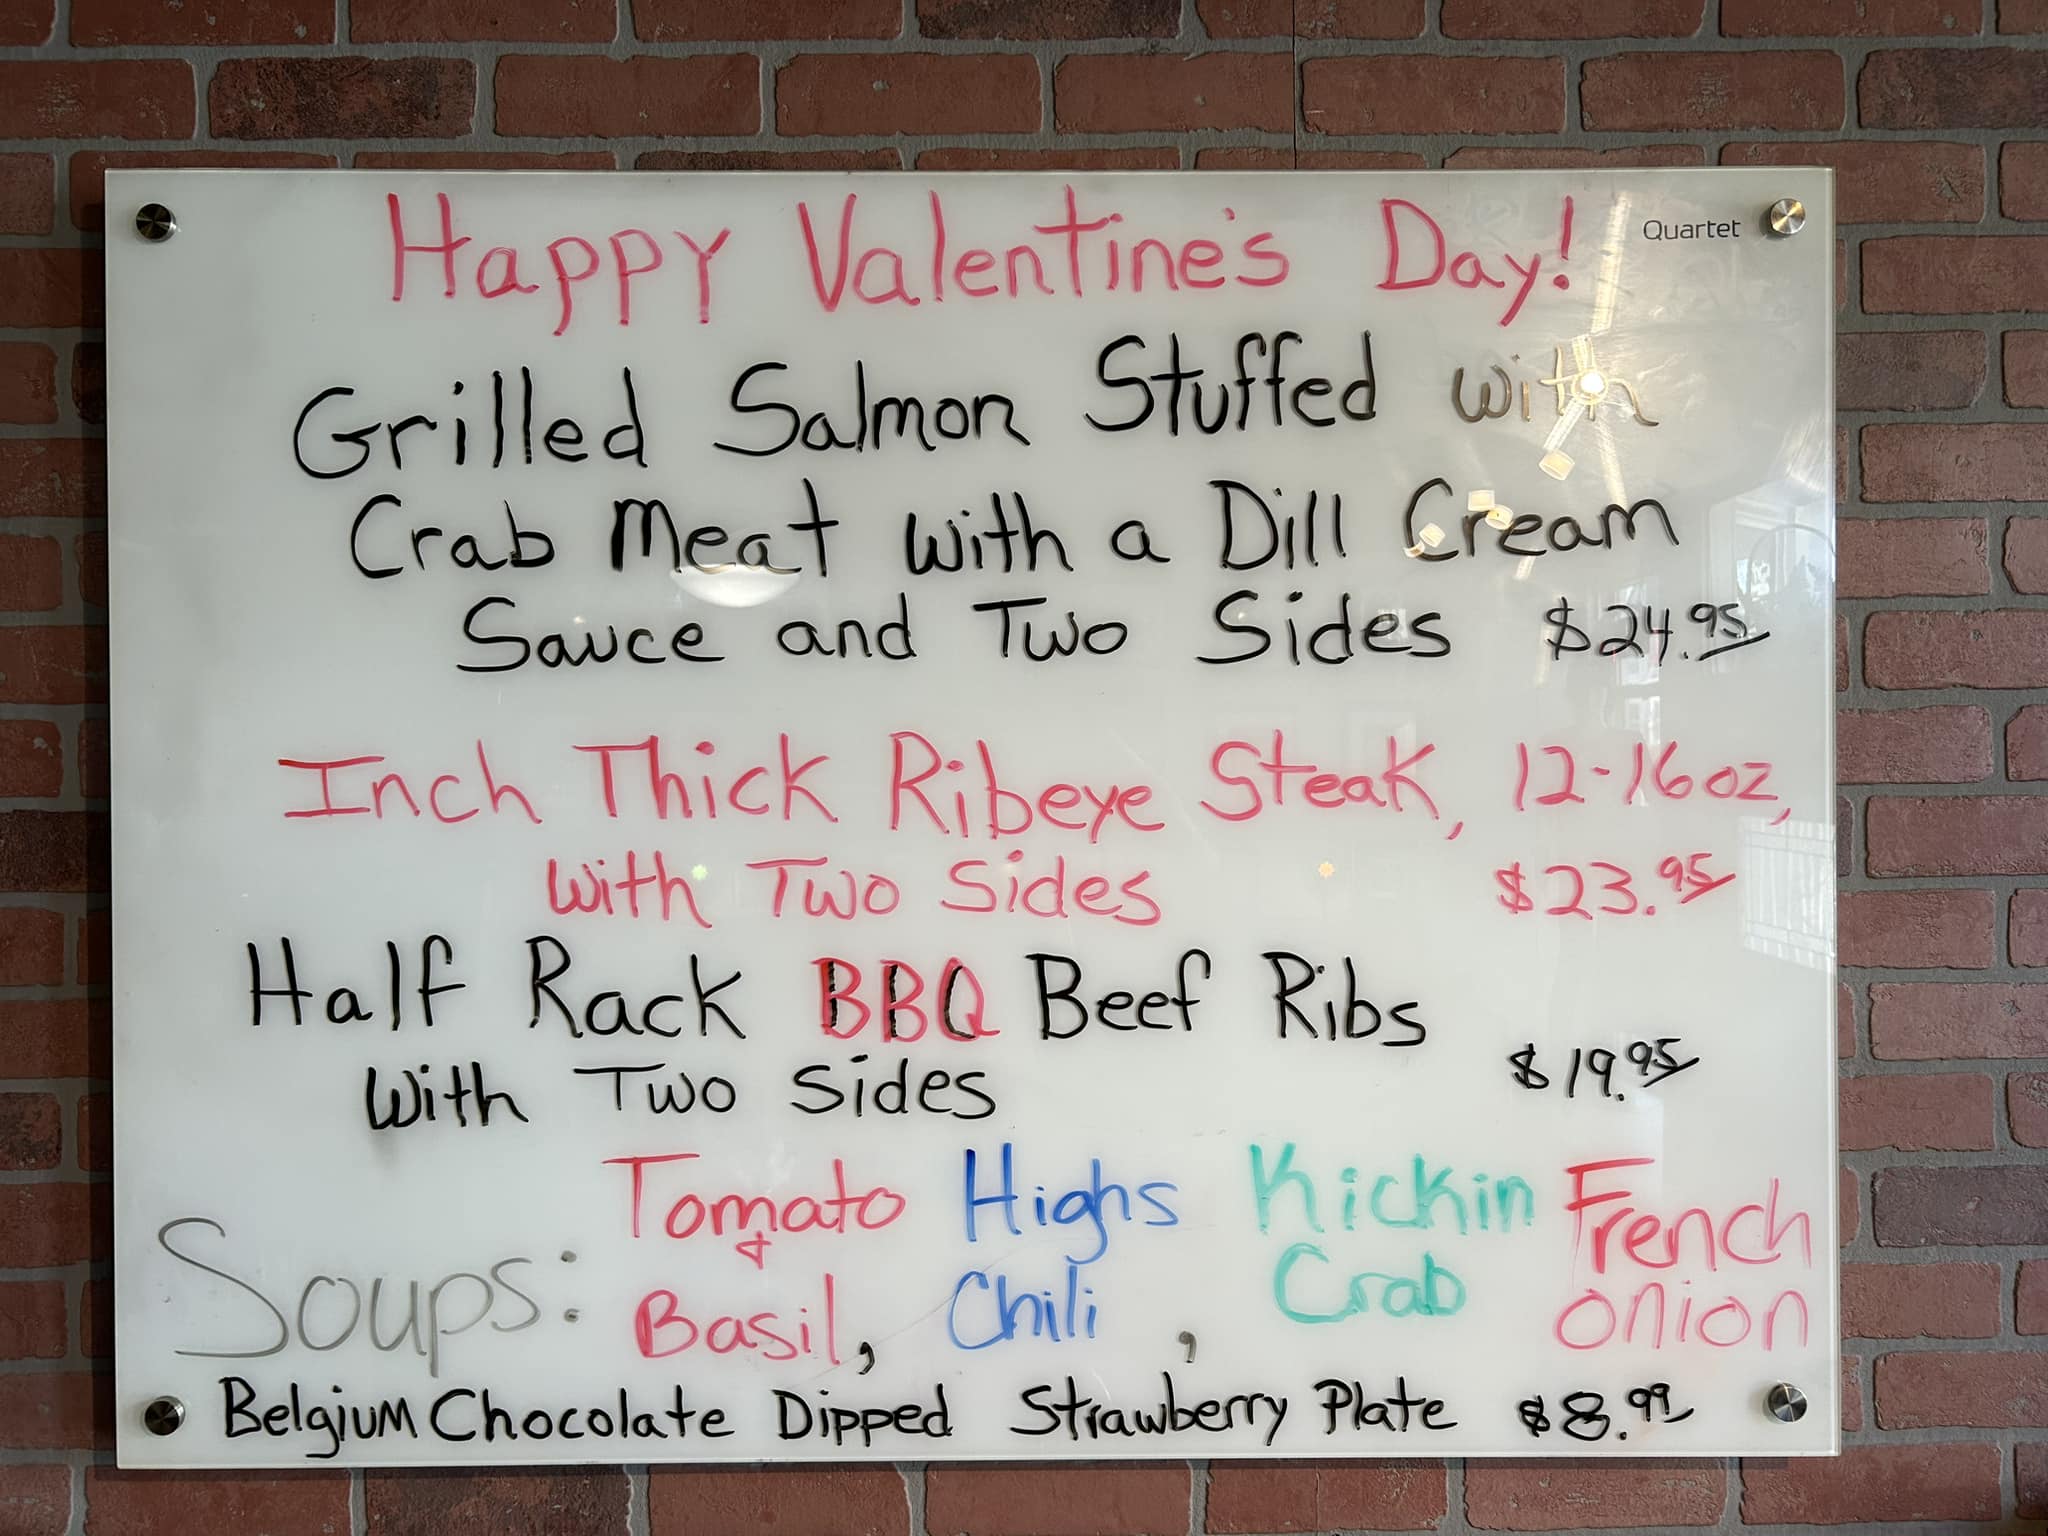 Happy Valentine's Day!
Quartet
Grilled Salmon Stuffed with
Crab Meat with a Dill Cream
Sauce and Two Sides $24.95
Inch Thick Ribeye Steak, 12-16oz,
with Two Sides $23.95
Half Rack BBQ Beef Ribs
With Two Sides $19.95
Soups:
Tomato
&
Basil,
Highs
Chili,
Kickin
Crab
French
onion
Belgium Chocolate Dipped Strawberry Plate $8.99